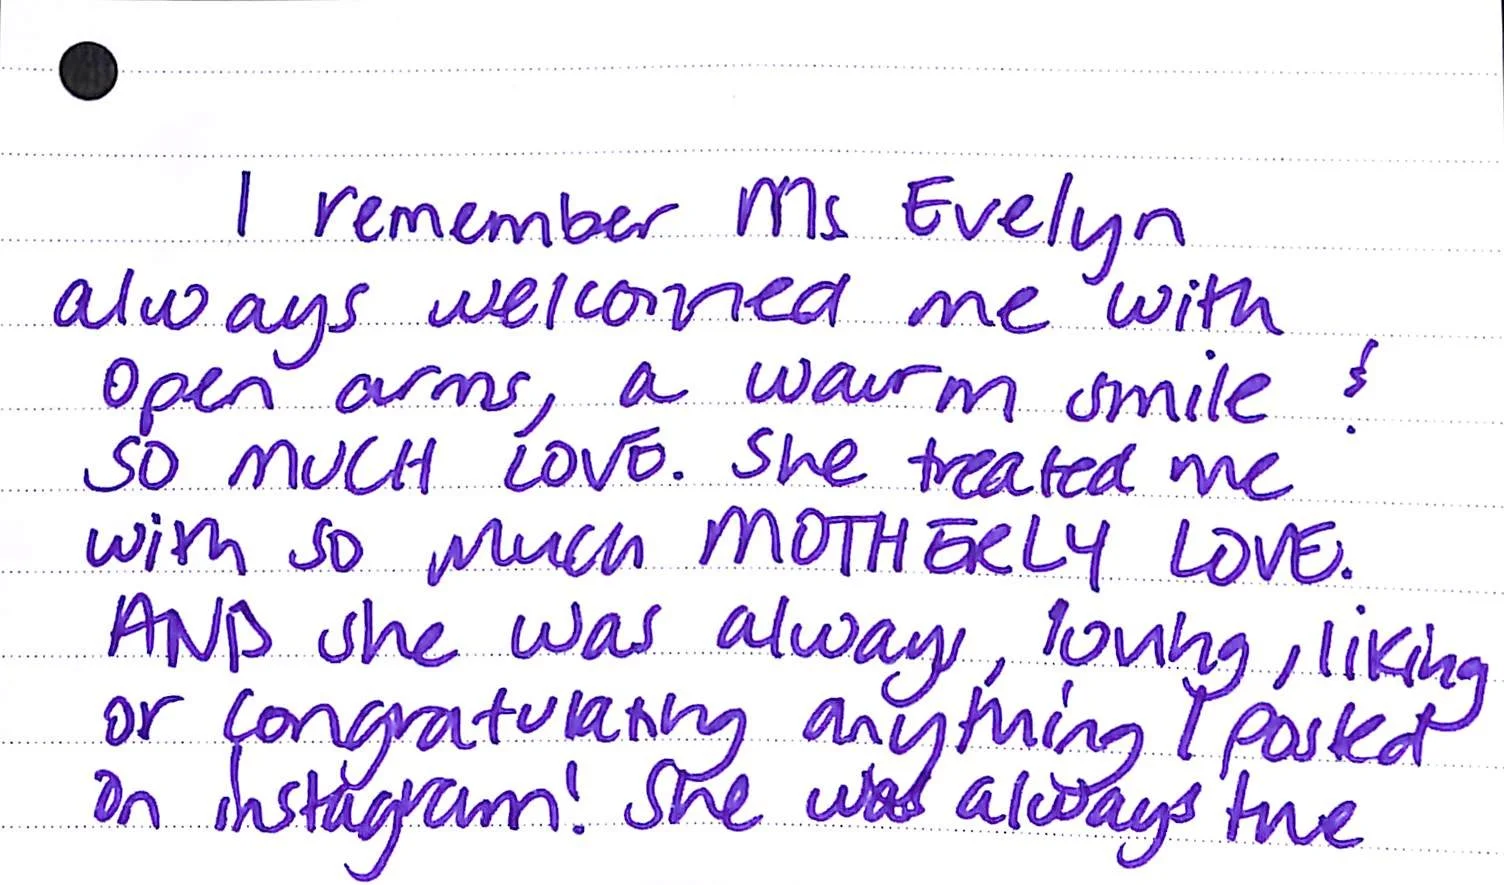 I remember Ms Evelyn
always welcomed me with
open arms, a warm smile &
SO MUCH LOVE. She treated me
with so much MOTHERLY LOVE.
AND she was always, loving, liking
or congratulating anything I posted
on instagram! She was always the